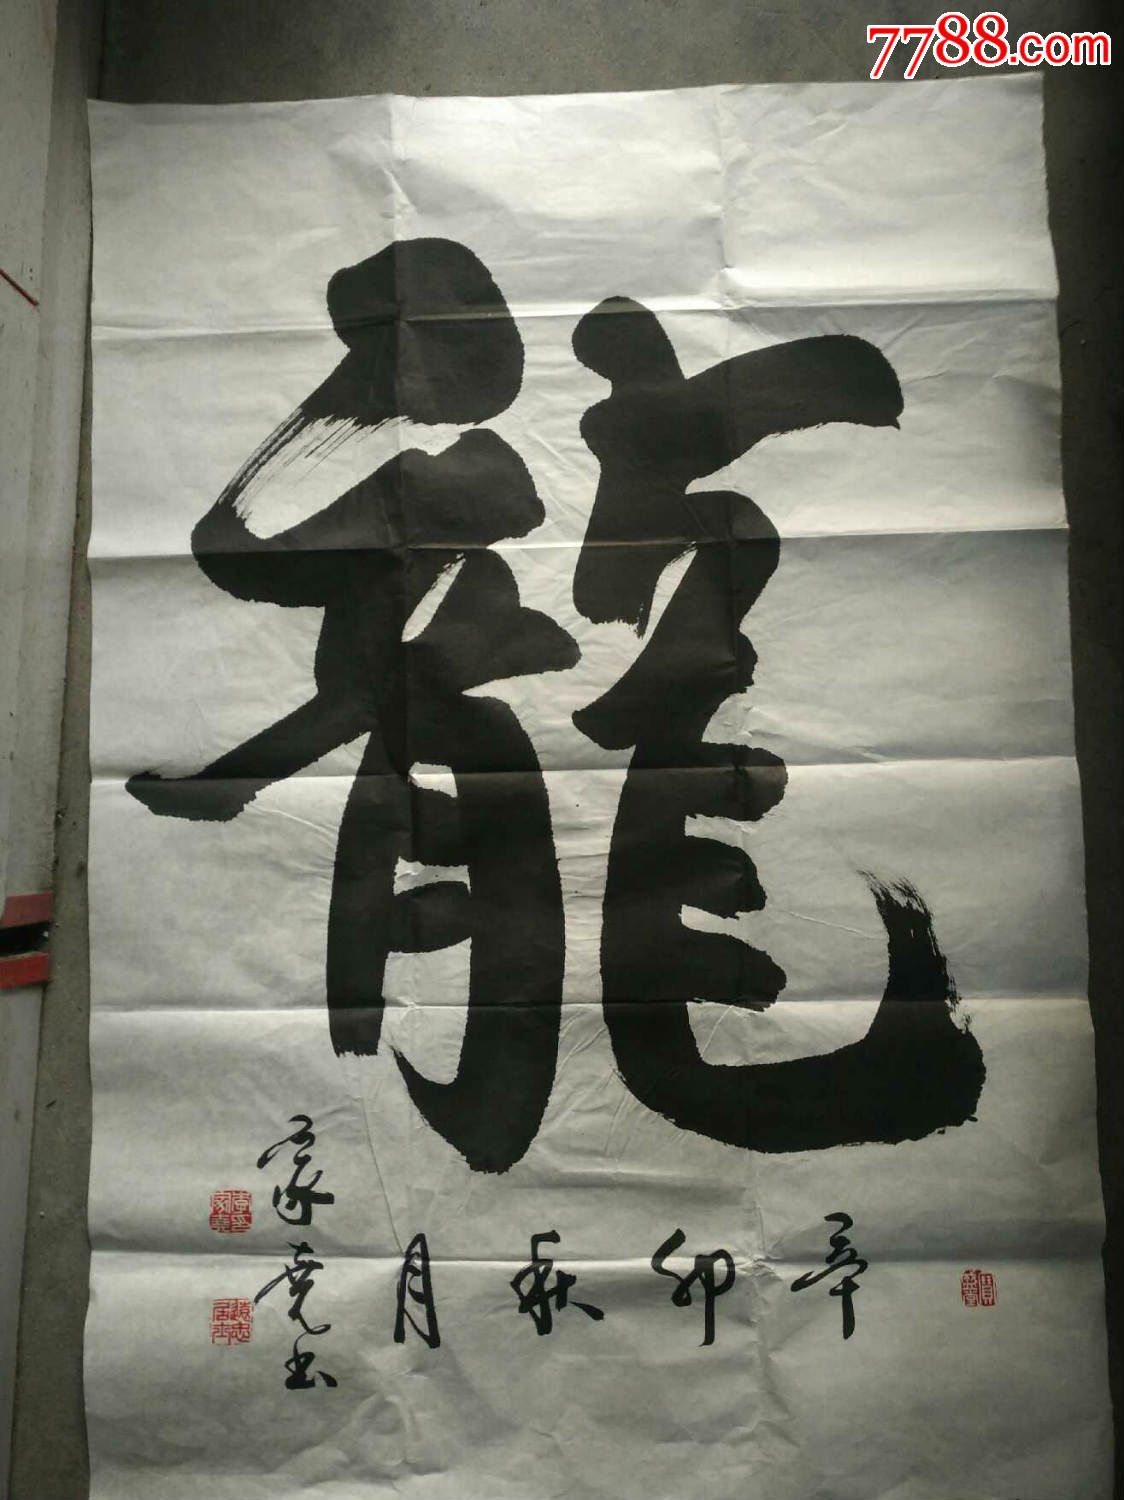 7788.com
龍
辛卯秋月
家堯书